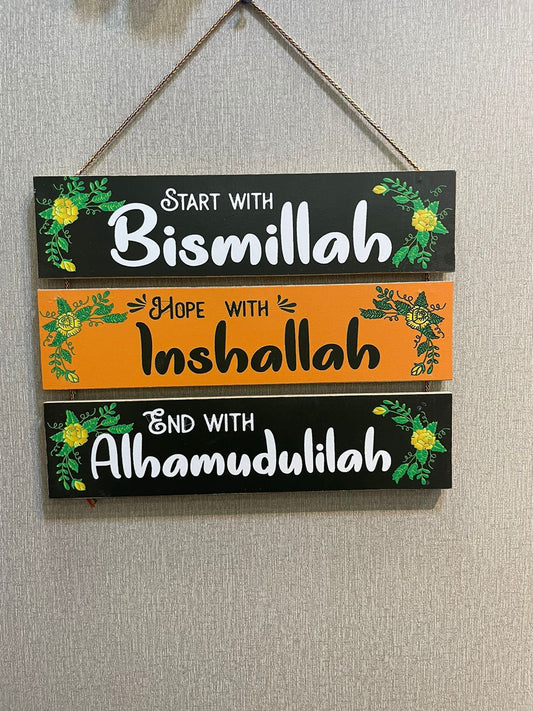 START WITH
Bismillah
HOPE WITH
Inshallah
END WITH
Alhamudulilah